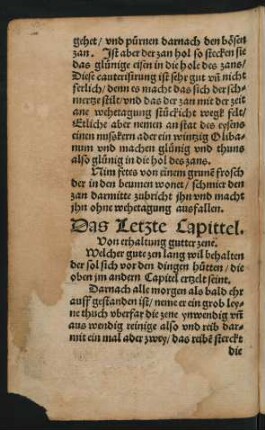 gehet / vnd pürnen darnach den bösen
zan. Ist aber der zan hol so stecken sie
das glünige eisen in die hole des zans /
Diese cauterisirung ist sehr gut vñ nicht
ferlich / denn es macht das sich der schm-
ertze stilt / vnd das der zan mit der zeit
ane wehetagung stückicht wegk felt /
Etliche aber nemen an stat des eysens
einen muszkern ader ein wintzig Oliba-
num vnd machen glünig vnd thuns
also glünig in die hol des zans.
Nim fetes von einem grunē frosch
der in den beumen wonet / schmier den
zan darmitte zubricht jhn vnd macht
jhn ohne wehetagung ausfallen.
Das Letzte Capittel.
Von erhaltung gutter zene.
Welcher gute zen lang wil behalten
der sol sich vor den dingen hütten / die
oben jm andern Capitel ertzelt seint.
Darnach alle morgen als bald ehr
auff gestanden ist / neme er ein grob ley-
ne thuch vberfar die zene ynwendig vñ
aus wendig reinige also vnd reib dar-
mit ein mal aber zwey / das reibē sterckt
die